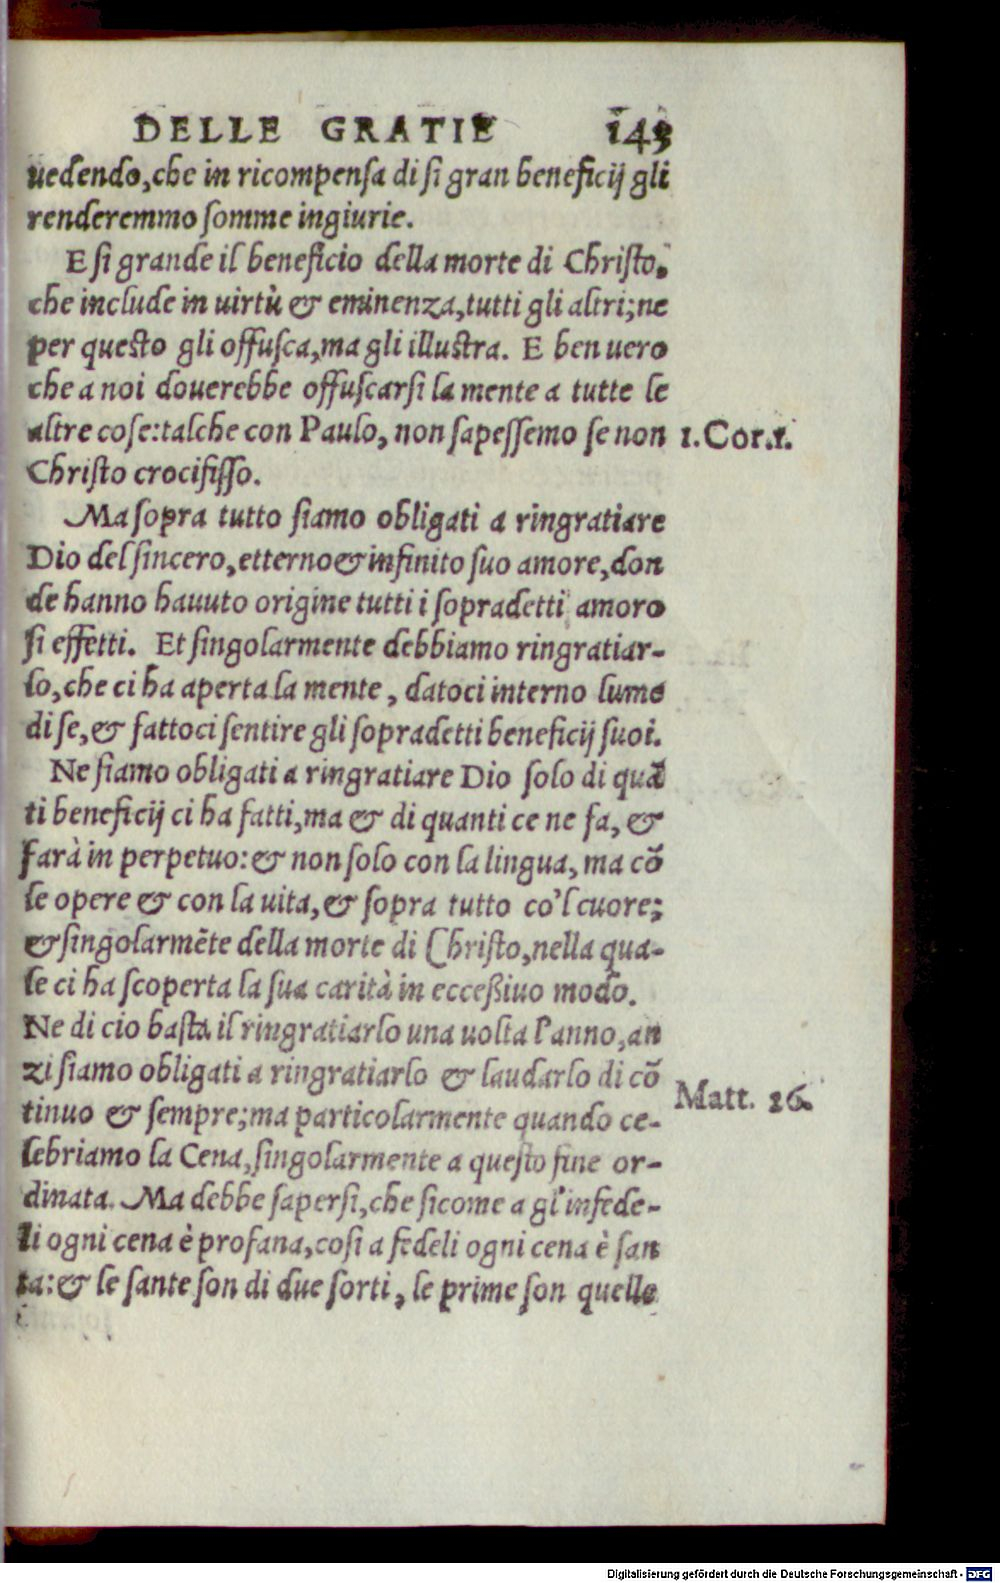 DELLE GRATIE 143
uedendo, che in ricompensa di si gran beneficij gli
renderemmo somme ingiurie.
E si grande il beneficio della morte di Christo,
che include in uirtù & eminenza, tutti gli altri; ne
per questo gli offusca, ma gli illustra. E ben uero
che a noi douerebbe offuscarsi la mente a tutte le
altre cose: talche con Paulo, non sapessemo se non
1.Cor.1.
Christo crocifisso.
Ma sopra tutto siamo obligati a ringratiare
Dio del sincero, etterno & infinito suo amore, don
de hanno hauuto origine tutti i sopradetti amoro
si effetti. Et singolarmente debbiamo ringratiar-
lo, che ci ha aperta la mente, datoci interno lume
di se, & fattoci sentire gli sopradetti beneficij suoi.
Ne siamo obligati a ringratiare Dio solo di quã
ti beneficij ci ha fatti, ma & di quanti ce ne fa, &
farà in perpetuo: & non solo con la lingua, ma cõ
le opere & con la uita, & sopra tutto co'l cuore;
& singolarmẽte della morte di Christo, nella qua-
le ci ha scoperta la sua carità in eccessiuo modo.
Ne di cio basta il ringratiarlo una uolta l'anno, an
zi siamo obligati a ringratiarlo & laudarlo di cõ
Matt. 26.
tinuo & sempre; ma particolarmente quando ce-
lebriamo la Cena, singolarmente a questo fine or-
dinata. Ma debbe sapersi, che sicome a gl'infede-
li ogni cena è profana, cosi a fedeli ogni cena è san
ta: & le sante son di due sorti, le prime son quelle
Digitalisierung gefördert durch die Deutsche Forschungsgemeinschaft - DFG